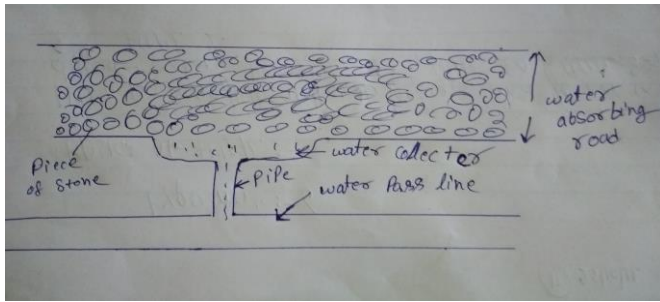 water
absorbing
road
Piece
of Stone
water collecter
PiPe
water Pass line